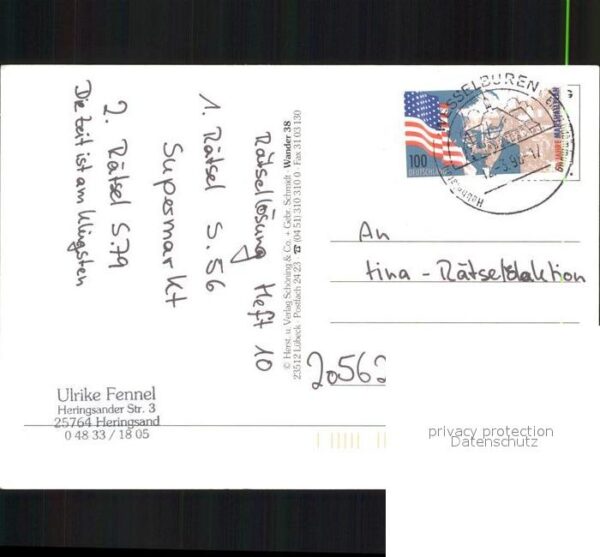 Rätsellösung Heft 10
1. Rätsel S. 56
Supermarkt
2. Rätsel S. 79
Die Zeit ist am klügsten
Ulrike Fennel
Heringsander Str. 3
25764 Heringsand
0 48 33 / 18 05
© Herst. u. Verlag Schöning & Co. + Gebr. Schmidt · Wander 38
23512 Lübeck · Postfach 24 23 ☎ (04 51) 310 310 0 · Fax 31 03 130
100
DEUTSCHLAND
50 JAHRE MARSHALLPLAN
SSELBUREN
An
tina - Rätselredaktion
20563
privacy protection
Datenschutz